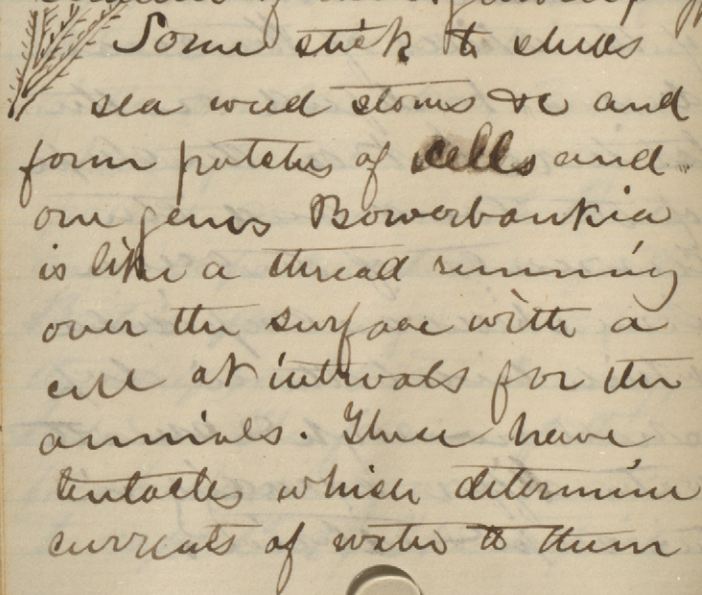 Some stick to shells
sea weed stones &c and
form patches of cells and
one genus Bowerbankia
is like a thread running
over the surface with a
cell at intervals for the
animals. These have
tentacles which determine
currents of water to them